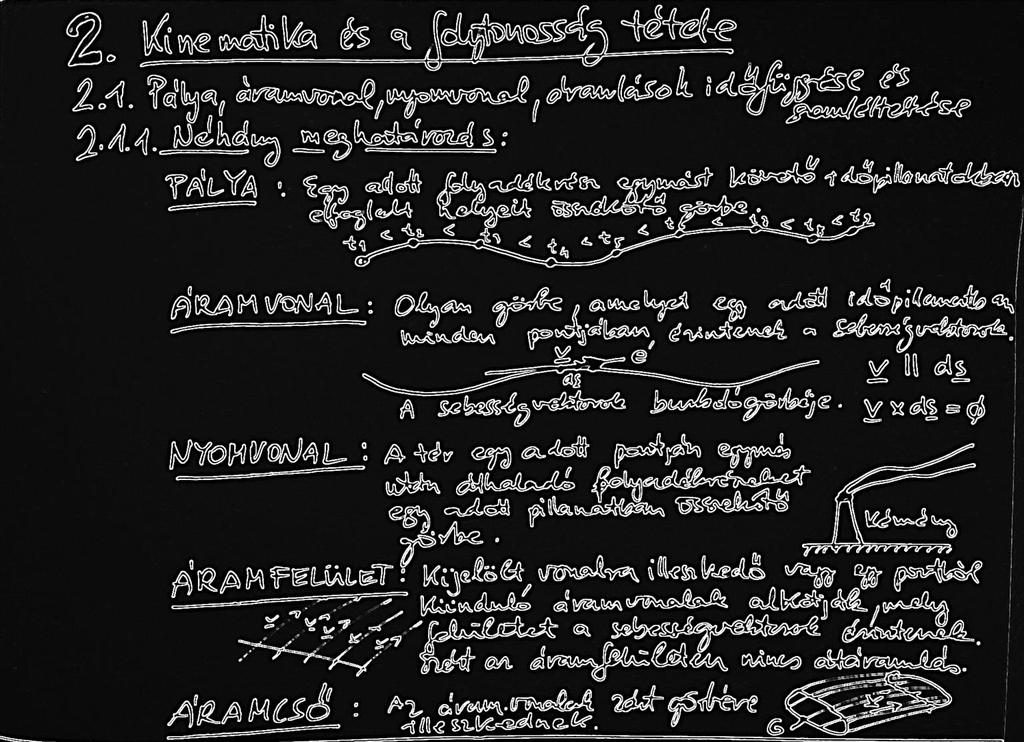 2. Kinematika és a folytonosság tétele
2.1. Pálya, áramvonal, nyomvonal, áramlások időfüggése és
szemléltetése
2.1.1. Néhány meghatározás:
PÁLYA : Egy adott folyadékrész egymást követő időpillanatokban
elfoglalt helyeit összekötő görbe.
t1 < t2 < t3 < t4 < t5 <
ÁRAMVONAL : Olyan görbe, amelyet egy adott időpillanatban
minden pontjában érintenek a sebességvektorok.
v é
ds
v || ds
A sebességvektorok burkológörbéje. v x ds = ϕ
NYOMVONAL : A tér egy adott pontján egymás
után áthaladó folyadékrészeket
egy adott pillanatban összekötő
görbe.
Kémény
ÁRAMFELÜLET : Kijelölt vonalra illeszkedő vagy egy pontból
kiinduló áramvonalak alkotják, mely
felületet a sebességvektorok érintenek.
Ezért az áramfelületen nincs átáramlás.
v v v v v
ÁRAMCSŐ : Az áramvonalak zárt görbére
illeszkednek.
G